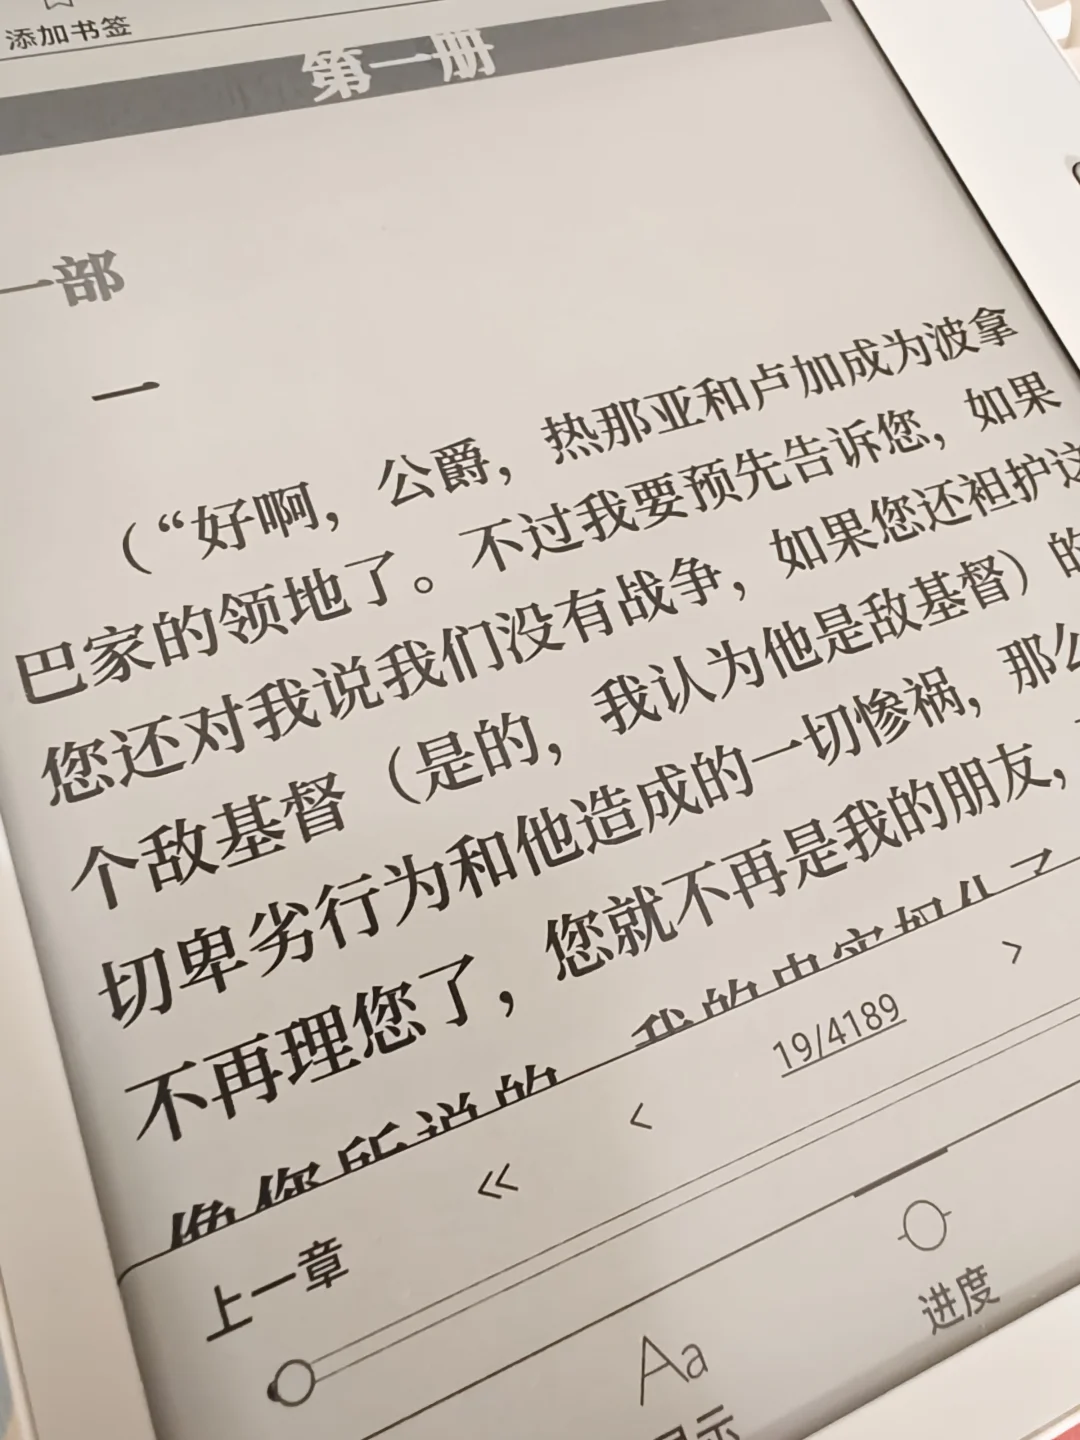 添加书签
第一册
一部
一
（“好啊，公爵，热那亚和卢加成为波拿
巴家的领地了。不过我要预先告诉您，如果
您还对我说我们没有战争，如果您还袒护这
个敌基督（是的，我认为他是敌基督）的
切卑劣行为和他造成的一切惨祸，那么
不再理您了，您就不再是我的朋友，
像您所说的 我的忠实奴仆了
19/4189
上一章
Aa
进度